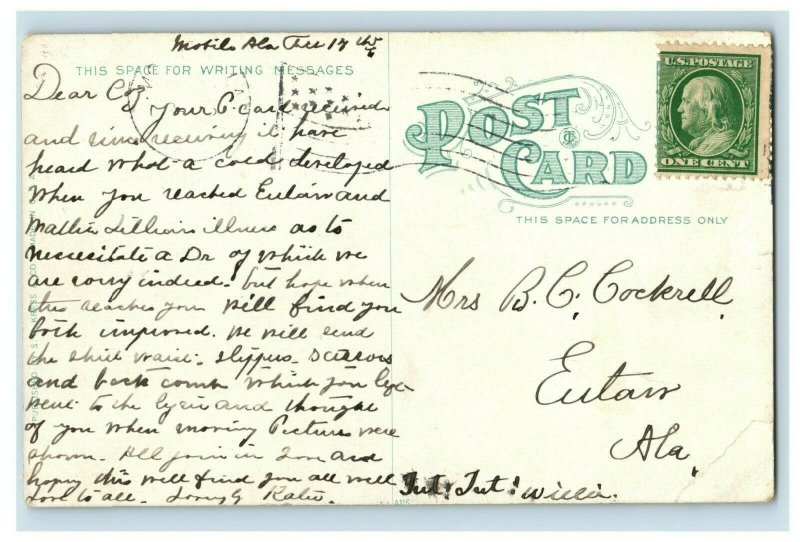 Mobile Ala Feb 17
THIS SPACE FOR WRITING MESSAGES
Dear
Your P. card received
and since receiving it have
heard what a cold developed
when you reached Eutaw and
Mattie Lillian's illness as to
necessitate a Dr of which we
are sorry indeed. but hope when
this reaches you will find you
both improved. We will send
the shirt waist - slippers - scissors
and back comb which you
went to the and thought
of you when moving Pictures were
shown. All join in love and
hoping this will find you all well
Love to all. Lovingly Katie.
POST CARD
THIS SPACE FOR ADDRESS ONLY
U.S. POSTAGE
ONE CENT
Mrs B. C. Cockrell,
Eutaw
Ala,
Tut! Tut! Willie.